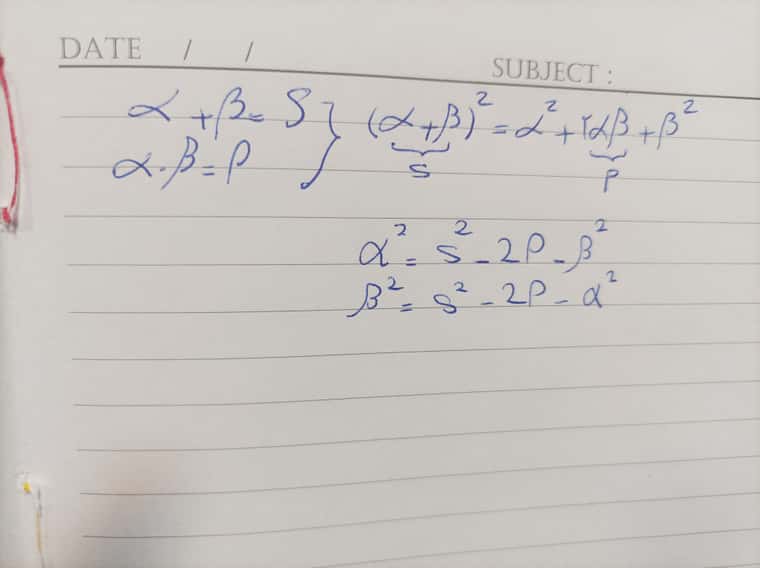 DATE / /
SUBJECT :
α + β = S } (α + β)² = α² + ۲αβ + β²
α . β = P
S P
α² = S² - 2P - β²
β² = S² - 2P - α²